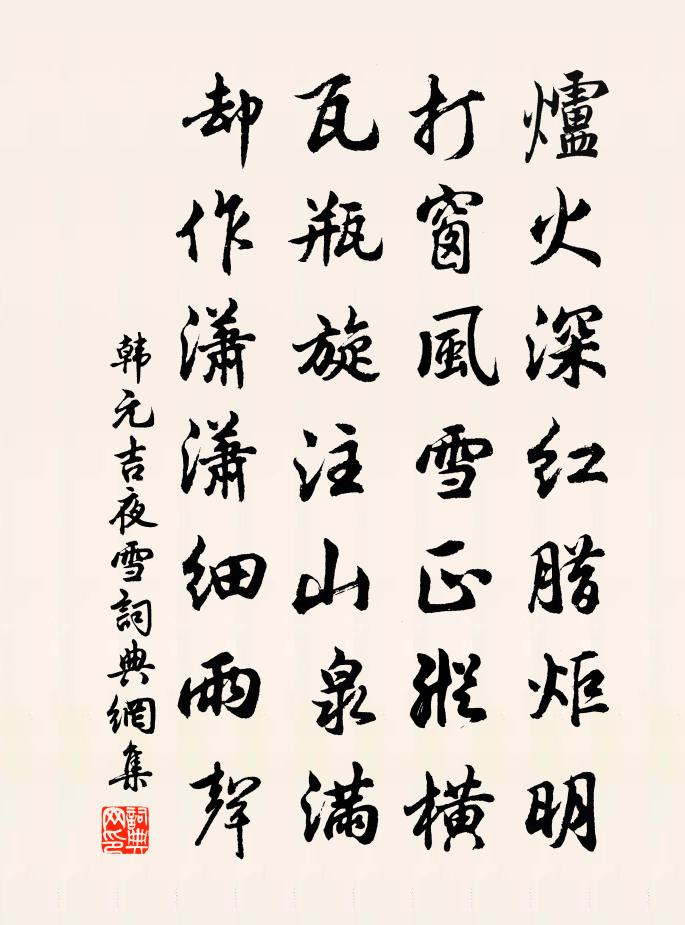 爐火深紅腊炬明
打窗風雪正縱橫
瓦瓶旋注山泉滿
却作瀟瀟細雨聲
韩元吉夜雪詞典網集
詞典
网印